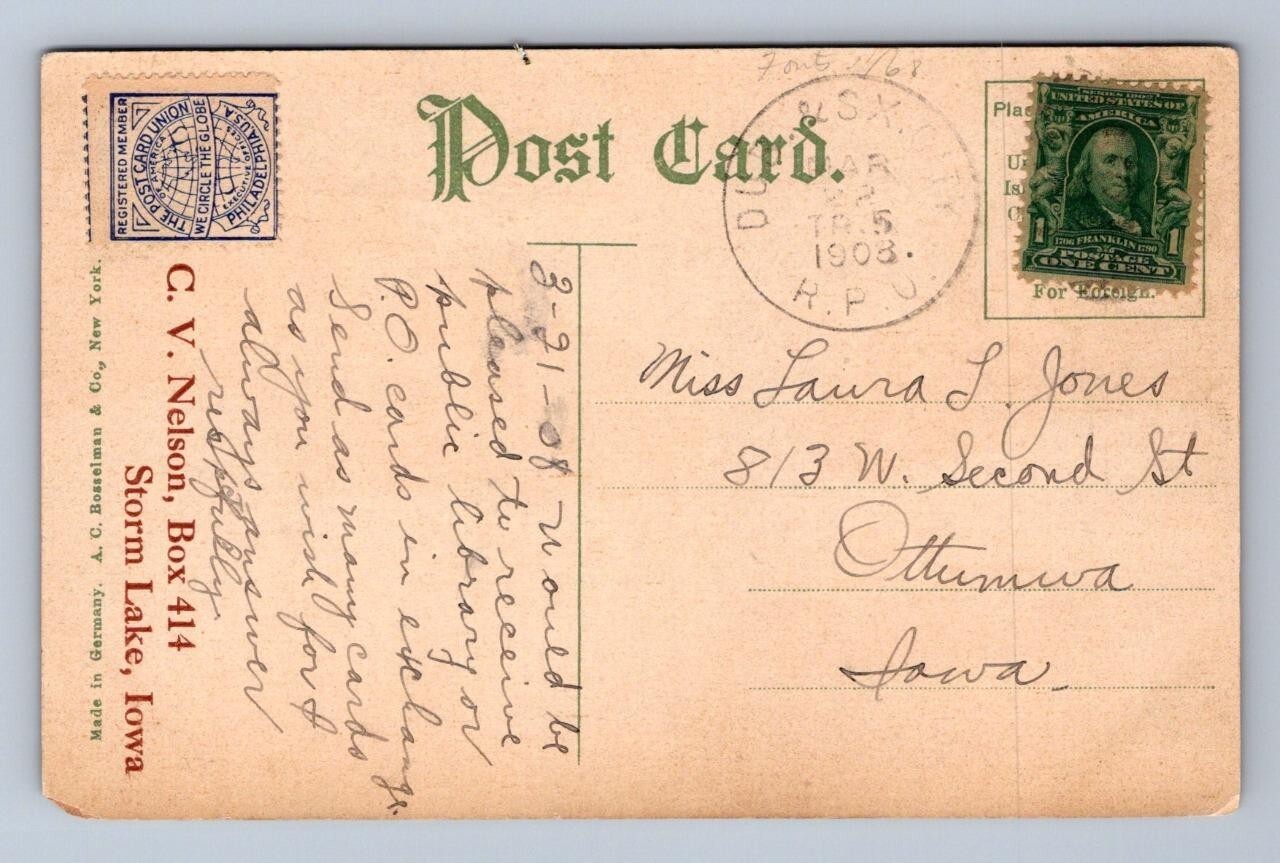 Post Card.
REGISTERED MEMBER
THE POST CARD UNION
OF AMERICA
WE CIRCLE THE GLOBE
EXECUTIVE OFFICES
PHILADELPHIA U.S.A.
DU & SX. TY
MAR
TR. 5
1908.
R. P. O.
Plac
Un
Is
C
For Foreign.
SERIES 1902
UNITED STATES OF
AMERICA
1706 FRANKLIN 1790
1 POSTAGE 1
ONE CENT
3-21-08 Would be
pleased to receive
public library or
P.O. cards in exchange.
Send as many cards
as you wish for I
always answer
respfully
C. V. Nelson, Box 414
Storm Lake, Iowa
Made in Germany. A. C. Bosselman & Co., New York.
Miss Laura L. Jones
813 W. Second St
Ottumwa
Iowa.